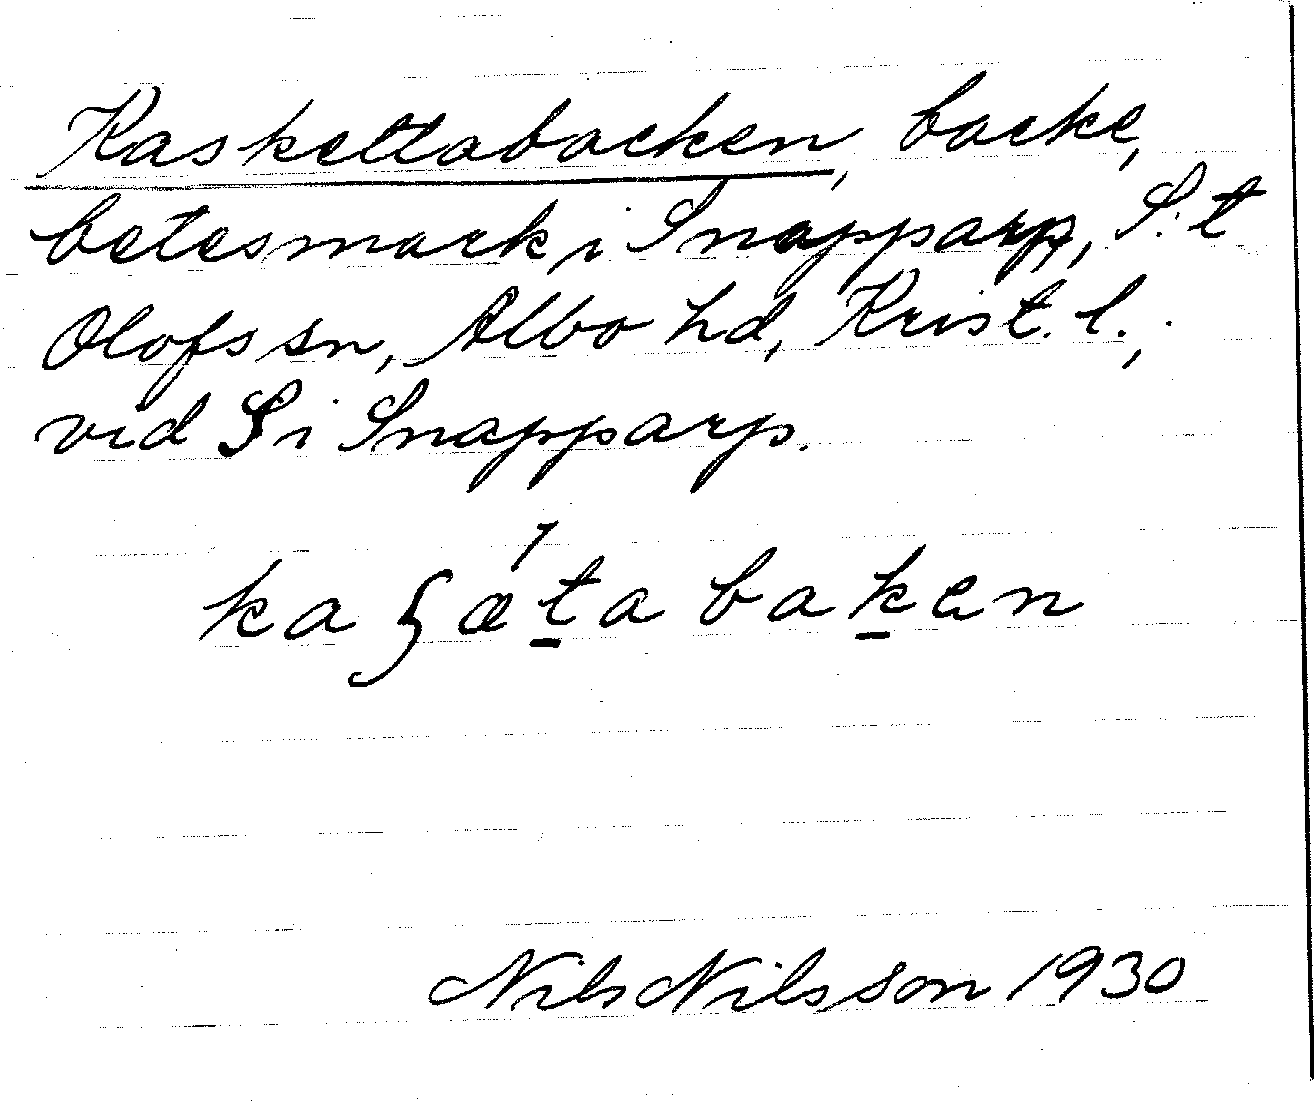 Kaskettabacken, backe,
betesmark i Snapparp, S:t
Olofs sn, Albo hd, Krist. l.,
vid S i Snapparp.
kaʂǽt̲a bak̲en
Nils Nilsson 1930